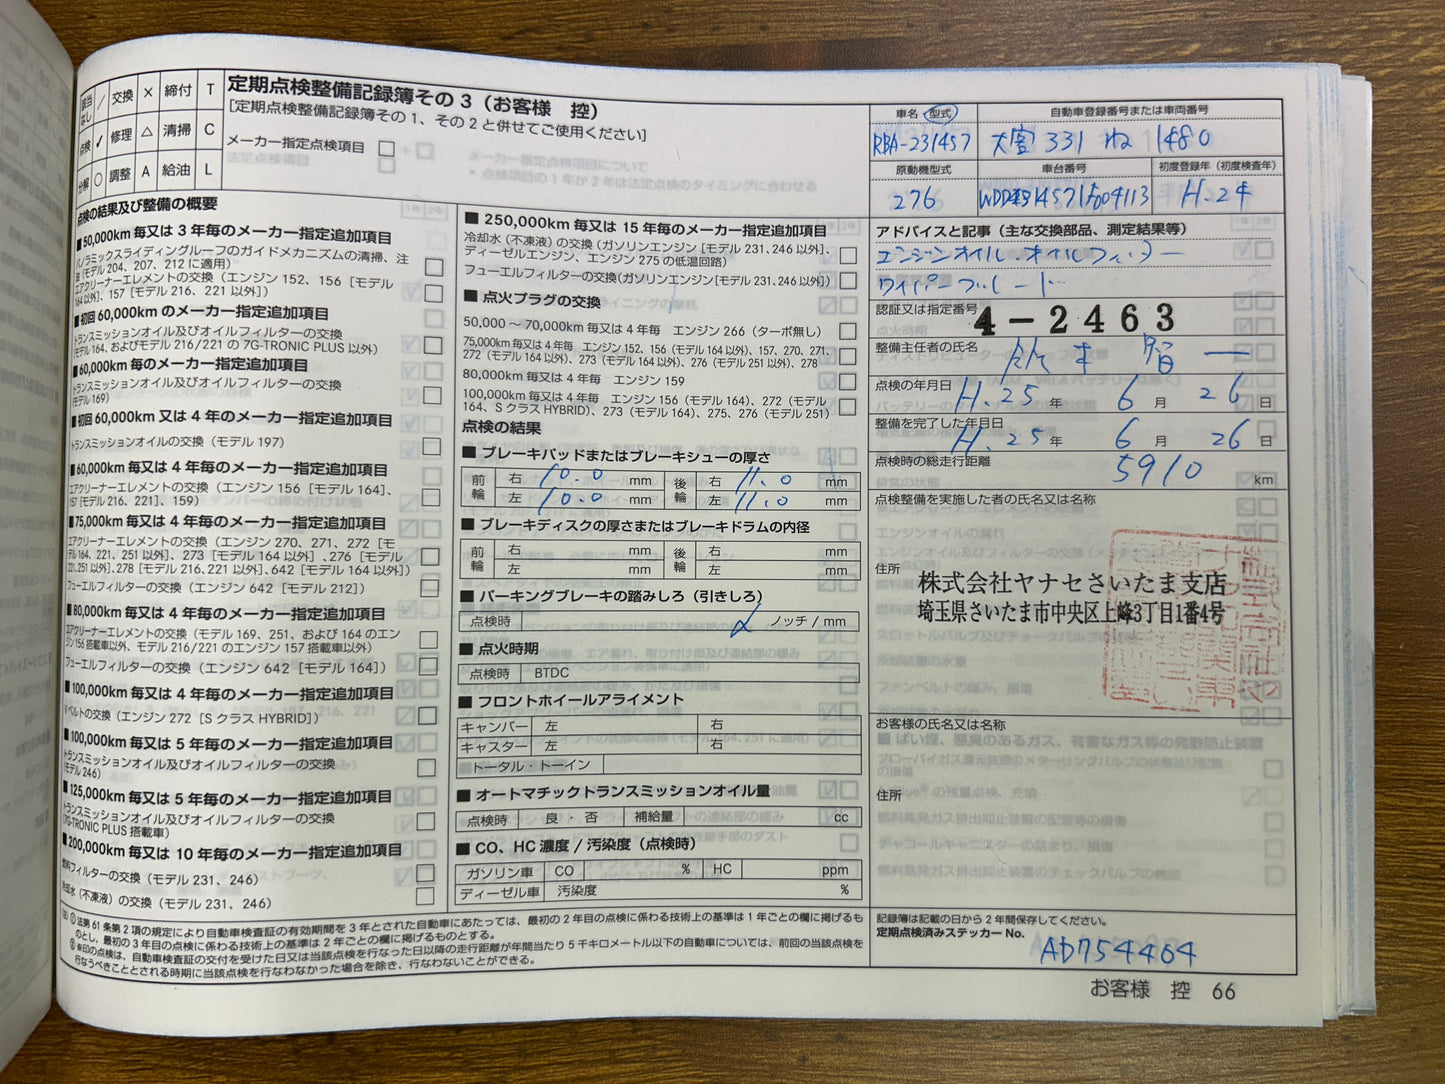 該当なし ／ 交換 × 締付 T
点検 ✓ 修理 △ 清掃 C
分解 ○ 調整 A 給油 L
定期点検整備記録簿その3（お客様 控）
[定期点検整備記録簿その1、その2と併せてご使用ください]
メーカー指定点検項目 □
点検の結果及び整備の概要
■50,000km 毎又は 3 年毎のメーカー指定追加項目
パノラミックスライディングルーフのガイドメカニズムの清掃、注
油（モデル 204、207、212 に適用）
エアクリーナーエレメントの交換（エンジン 152、156［モデル
164 以外］、157［モデル 216、221 以外］）
■初回 60,000km のメーカー指定追加項目
トランスミッションオイル及びオイルフィルターの交換
（モデル 164、およびモデル 216/221 の 7G-TRONIC PLUS 以外）
■60,000km 毎のメーカー指定追加項目
トランスミッションオイル及びオイルフィルターの交換
（モデル 169）
■初回 60,000km 又は 4 年毎のメーカー指定追加項目
トランスミッションオイルの交換（モデル 197）
■60,000km 毎又は 4 年毎のメーカー指定追加項目
エアクリーナーエレメントの交換（エンジン 156［モデル 164］、
157［モデル 216、221］、159）
■75,000km 毎又は 4 年毎のメーカー指定追加項目
エアクリーナーエレメントの交換（エンジン 270、271、272［モ
デル 164、221、251 以外］、273［モデル 164 以外］、276［モデル
221、251 以外］、278［モデル 216、221 以外］、642［モデル 164 以外］）
フューエルフィルターの交換（エンジン 642［モデル 212］）
■80,000km 毎又は 4 年毎のメーカー指定追加項目
エアクリーナーエレメントの交換（モデル 169、251、および 164 のエン
ジン 156 搭載車以外、モデル 216/221 のエンジン 157 搭載車以外）
フューエルフィルターの交換（エンジン 642［モデル 164］）
■100,000km 毎又は 4 年毎のメーカー指定追加項目
V ベルトの交換（エンジン 272［S クラス HYBRID］）
■100,000km 毎又は 5 年毎のメーカー指定追加項目
トランスミッションオイル及びオイルフィルターの交換
（モデル 246）
■125,000km 毎又は 5 年毎のメーカー指定追加項目
トランスミッションオイル及びオイルフィルターの交換
（7G-TRONIC PLUS 搭載車）
■200,000km 毎又は 10 年毎のメーカー指定追加項目
燃料フィルターの交換（モデル 231、246）
冷却水（不凍液）の交換（モデル 231、246）
■ 250,000km 毎又は 15 年毎のメーカー指定追加項目
冷却水（不凍液）の交換（ガソリンエンジン［モデル 231、246 以外］、
ディーゼルエンジン、エンジン 275 の低温回路）
フューエルフィルターの交換（ガソリンエンジン［モデル 231、246 以外］）
■ 点火プラグの交換
50,000 〜 70,000km 毎又は 4 年毎 エンジン 266（ターボ無し）
75,000km 毎又は 4 年毎 エンジン 152、156（モデル 164 以外）、157、270、271、
272（モデル 164 以外）、273（モデル 164 以外）、276（モデル 251 以外）、278
80,000km 毎又は 4 年毎 エンジン 159
100,000km 毎又は 4 年毎 エンジン 156（モデル 164）、272（モデル
164、S クラス HYBRID）、273（モデル 164）、275、276（モデル 251）
点検の結果
■ ブレーキパッドまたはブレーキシューの厚さ
前輪 右 10.0 mm 後輪 右 11.0 mm
左 10.0 mm 左 11.0 mm
■ ブレーキディスクの厚さまたはブレーキドラムの内径
前輪 右 mm 後輪 右 mm
左 mm 左 mm
■ パーキングブレーキの踏みしろ（引きしろ）
点検時 ノッチ / mm
■ 点火時期
点検時 BTDC
■ フロントホイールアライメント
キャンバー 左 右
キャスター 左 右
トータル・トーイン
■ オートマチックトランスミッションオイル量
点検時 良 ・ 否 補給量 cc
■ CO、HC 濃度 / 汚染度（点検時）
ガソリン車 CO % HC ppm
ディーゼル車 汚染度 %
車名 型式 自動車登録番号または車両番号
RBA-231457 大宮 331 ね 1480
原動機型式 車台番号 初度登録年（初度検査年）
276 H.24
アドバイスと記事（主な交換部品、測定結果等）
エンジンオイル・オイルフィルター
ワイパーブレード
認証又は指定番号 4-2463
整備主任者の氏名
点検の年月日 H.25 年 6 月 26 日
整備を完了した年月日 H.25 年 6 月 26 日
点検時の総走行距離 5910 km
点検整備を実施した者の氏名又は名称
住所 株式会社ヤナセさいたま支店
埼玉県さいたま市中央区上峰3丁目1番4号
お客様の氏名又は名称
住所
（注）① 法第 61 条第 2 項の規定により自動車検査証の有効期間を 3 年とされた自動車にあたっては、最初の 2 年目の点検に係わる技術上の基準は 1 年ごとの欄に掲げるも
のとし、最初の 3 年目の点検に係わる技術上の基準は 2 年ごとの欄に掲げるものとする。
② ※印の点検は、自動車検査証の交付を受けた日又は当該点検を行なった日以降の走行距離が年間当たり 5 千キロメートル以下の自動車については、前回の当該点検を
行なうべきこととされる時期に当該点検を行なわなかった場合を除き、行なわないことができる。
記録簿は記載の日から 2 年間保存してください。
定期点検済みステッカー No.
AD754464
お客様 控 66